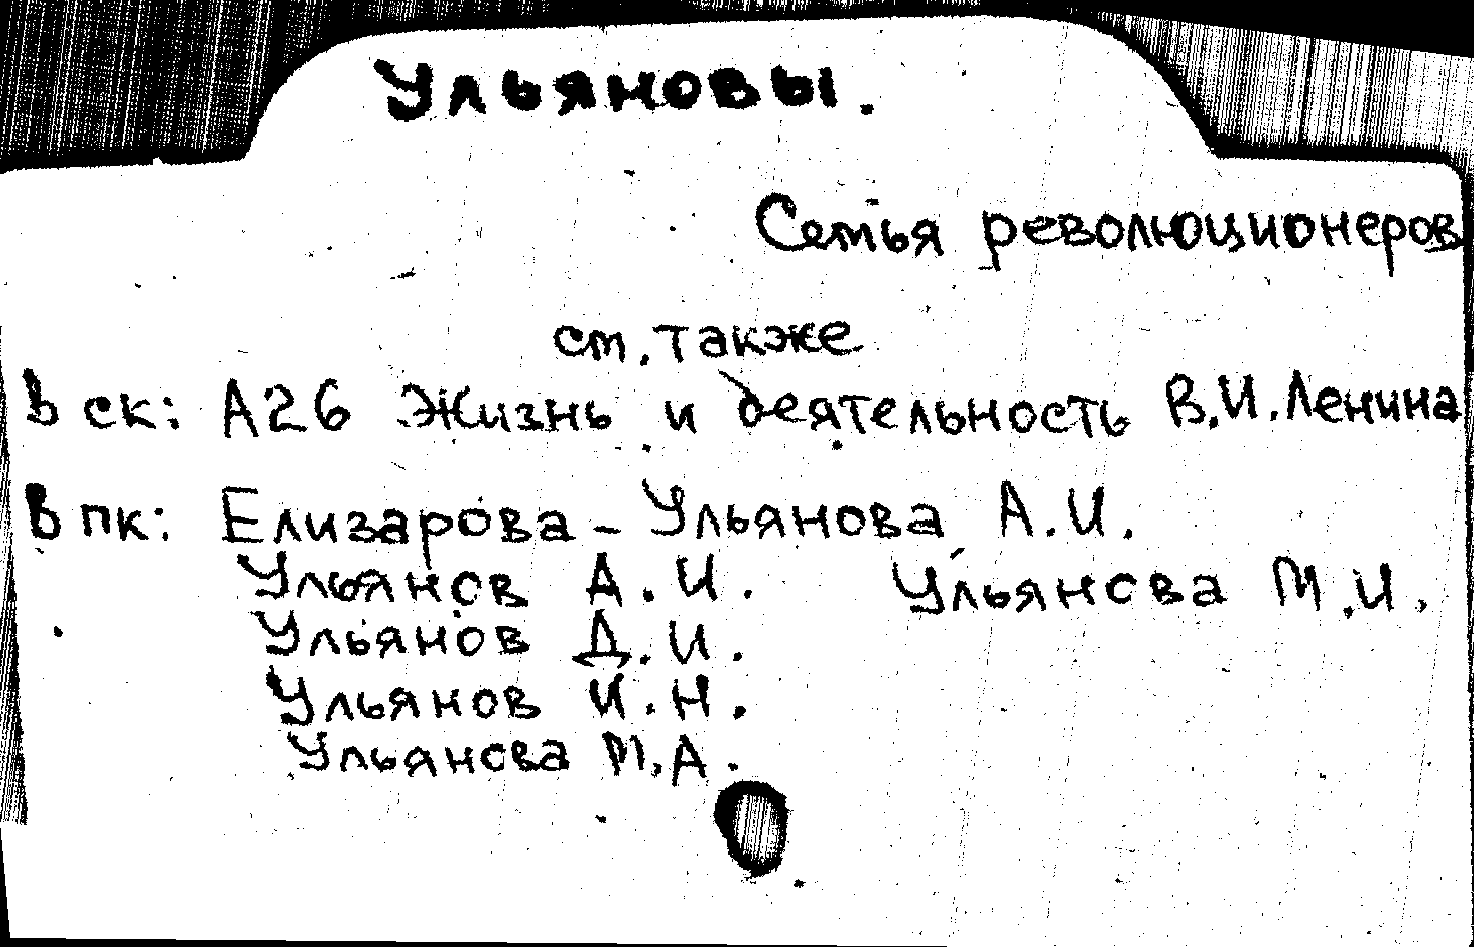 Ульяновы.
Семья революционеров
см. также
В ск: А26 Жизнь и деятельность В.И.Ленина
В пк: Елизарова - Ульянова А.И.
Ульянов А.И. Ульянова М.И.
Ульянов Д.И.
Ульянов И.Н.
Ульянова М.А.